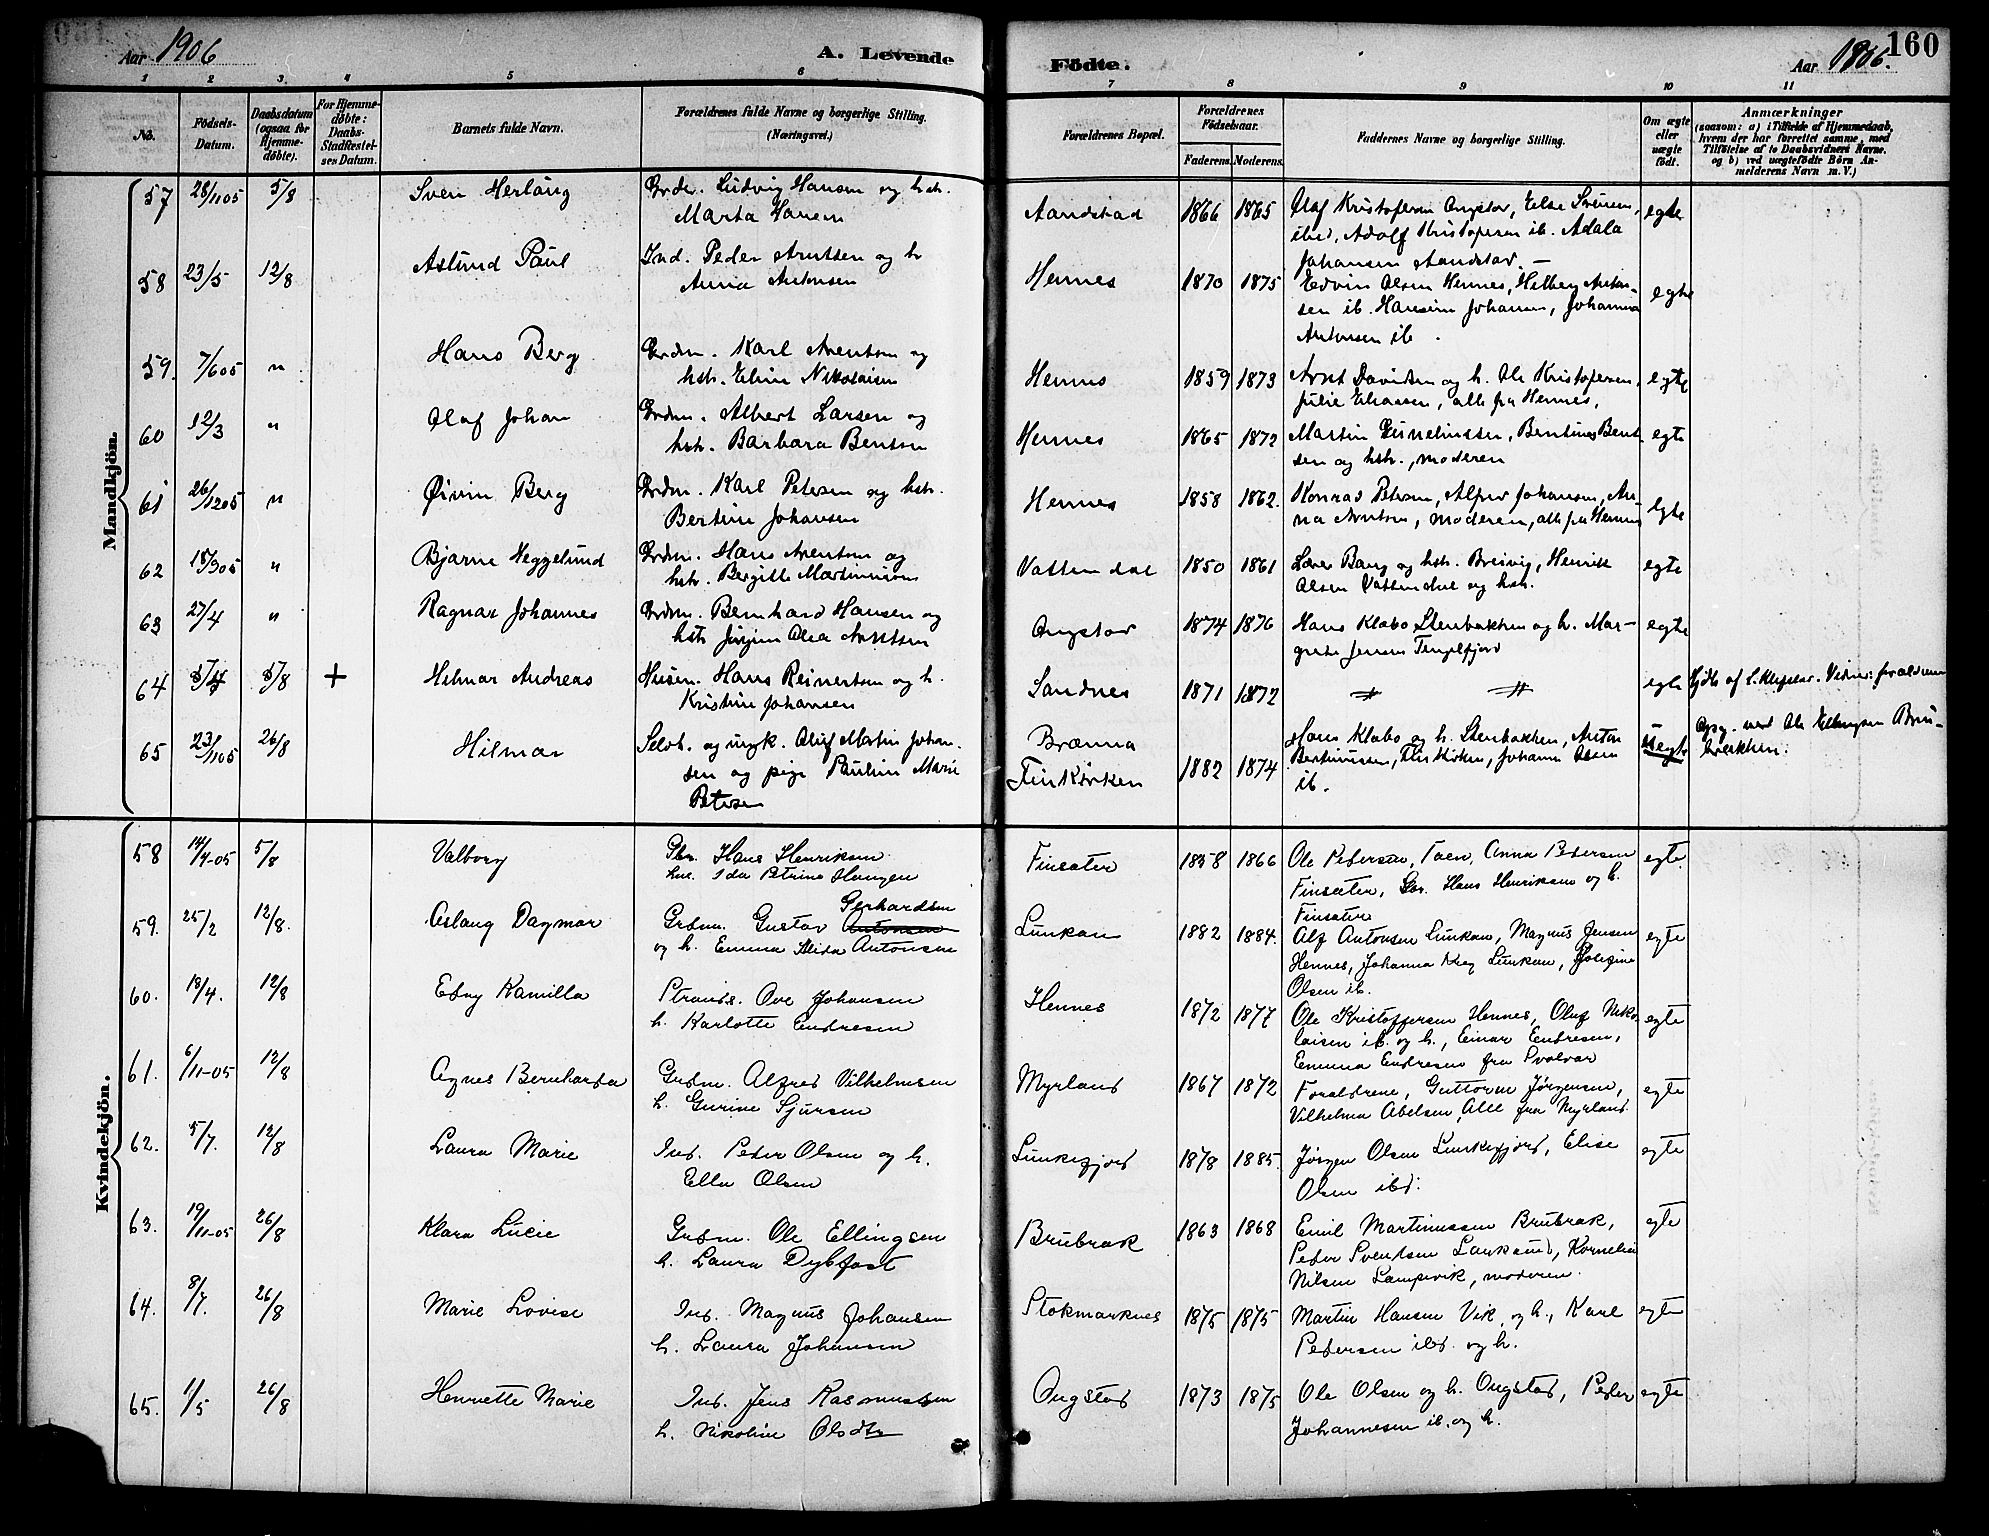 Aar 1906
A. Levende
Födte.
Aar 1906.
160
1 2 3 4 5 6 7 8 9 10 11
No.
Födsels-Datum.
Daabsdatum (ogsaa for Hjemme-döbte).
For Hjemme-döbte: Daabs-Stadfæstel-ses Datum.
Barnets fulde Navn.
Forældrenes fulde Navne og borgerlige Stilling.
(Næringsvei.)
Forældrenes Bopæl.
Forældrenes Födselsaar.
Faderens. Moderens.
Faddernes Navne og borgerlige Stilling.
Om ægte eller uægte födt.
Anmærkninger
(saasom: a) i Tilfælde af Hjemmedaab,
hvem der har forrettet samme, med
Tilföielse af to Daabsvidners Navne,
og b) ved uægtefödte Börn An-
melderens Navn m. V.)
Mandkjön.
57 28/11 05 5/8 Sven Herlaug
Grdm. Ludvig Hansen og hstr.
Marta Hansen
Aandstad 1866 1865
Olaf Kristofersen Ongstad, Else Svensen,
ibid, Adolf Kristofersen ib. Adala
Johansen Aandstad. —
egte
58 23/5 12/8 Astund Paul
Ind. Peder Arntsen og h
Anna Antonsen
Hennes 1870 1875
Edvin Olsen Hennes, Hilberg Anton-
sen ib. Hansine Johansen, Johanna
Antonsen ib.
egte
59. 7/6 05 " Hans Berg
Grdm. Karl Arentsen og
hstr. Eline Nikolaisen
Hennes 1859 1873
Arnt Davidsen og h. Ole Kristofersen,
Julie Eliassen, alle fra Hennes.
egte
60 12/3 " Olaf Johan
Grdm. Albert Larsen og
hstr. Barbara Bentsen
Hennes 1865 1872
Martin Bent-
sen og hstr., moderen
egte
61 26/12 05 " Øivin Berg
Grdm. Karl Petersen og hstr.
Bertine Johansen
Hennes 1858 1862.
Konrad Petersen, Alfred Johansen, An-
na Arntsen, moderen, alle fra Hennes
egte
62 18/9 05 " Bjarne Heggelund
Grdm. Hans Arentsen og
hstr. Bergitte Martinussen
Vattendal 1850 1861
Lærer Bang og hstr. Breivig, Henrik
Olsen Vattendal og hstr.
egte
63 27/4 " Ragnar Johannes
Grdm. Bernhard Hansen og
hstr Jørgine Olea Arntsen
Ongstad 1874 1876
Hans Klabo Stenbakken og h. Mar-
grete Jensen Tengelfjord
egte
64 5/8 + Hilmar Andreas
Husm. Hans Reinertsen og h.
Kristine Johansen
Sandnes 1871 1872
egte
Hjdb af Vidner: forældrene
65 23/11 05 26/8 Hilmar
Selvst. og ungk. Oluf Martin Johan-
sen og pige Pauline Marie
Petersen
Brænna
Finkirken 1882 1874
Hans Klabo og h. Stenbakken, Anton
Bertinussen, Finkirken, Johanna Olsen
ib.
Uegte
Opg. ved Ole Ellingsen Bru-
brækken.
Kvindekjön.
58 14/7-05 5/8 Valborg
Gbr. Hans Henriksen
hus. Ida Petrine Hangen
Finsæter 1858 1866
Ole Pedersen, Taen, Anna Pedersen
Finsæter, Gbr. Hans Henriksen og h.
Finsæter
egte.
59. 25/2 12/8. Aslaug Dagmar
Gerhardsen
Grdm. Gustav Antonsen
og h. Emma Alida Antonsen
Lunkan 1882 1884.
Alf Antonsen Lunkan, Magnus Jensen
Hennes, Johanna Kieg Lunkan, Joligine
Olsen ib.
egte
60. 18/4. 12/8 Edny Kamilla
Strands. Ove Johansen
h. Karlotte Endresen
Hennes 1872 1877
Ole Kristoffersen Hennes, Oluf Niko-
laisen ib. og h., Einar Endresen,
Emma Endresen fra Svolvær
egte
61. 6/11-05 12/8 Agnes Bernharda
Grdm. Alfred Vilhelmsen
h. Gurine Sjursen
Myrland 1867 1872
Forældrene, Guttorm Jørgensen,
Vilhelma Abelsen, Alle fra Myrland.
egte
62. 5/7. 12/8 Laura Marie
Ind. Peder Olsen og h.
Ella Olsen
Lunkefjord 1878 1885.
Jørgen Olsen Lunkefjord, Elise
Olsen ibd.
egte
63. 19/11-05 26/8 Klara Lucie
Grdm. Ole Ellingsen
h. Laura Dybfast
Brubræk 1863 1868
Emil Martinussen Brubræk,
Peder Svendsen Lauksund, Kornelie
Nilsen Lampevik, moderen.
egte
64. 8/7. 26/8 Marie Lovise
Ind. Magnus Johansen
h. Laura Johansen
Stokmarknes 1875 1875
Martin Hansen Vik, og h., Karl
Pedersen ibd. og h.
egte
65. 1/5 26/8 Henriette Marie
Ind. Jens Rasmussen
h. Nikoline Olsdtr
Ongstad 1873 1875
Ole Olsen og h. Ongstad, Peder
Johannesen ib. og h.
egte